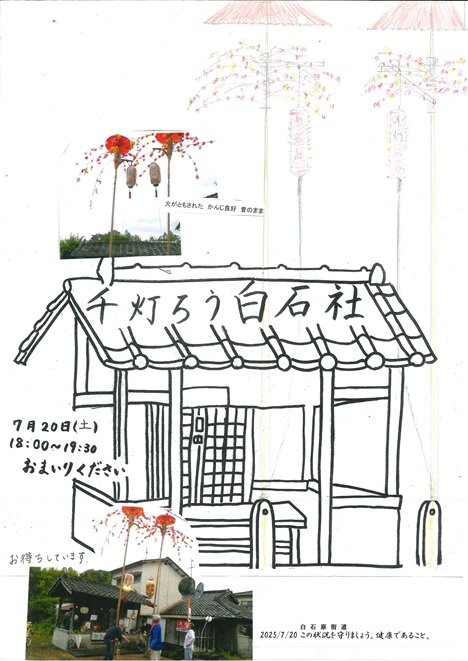 火がともされた かんじ良好 昔のまま
千灯ろう白石社
7月20日(土)
18:00〜19:30
おまいりください
お待ちしています。
白石原街道
2025/7/20 この状況を守りましょう。健康であること。